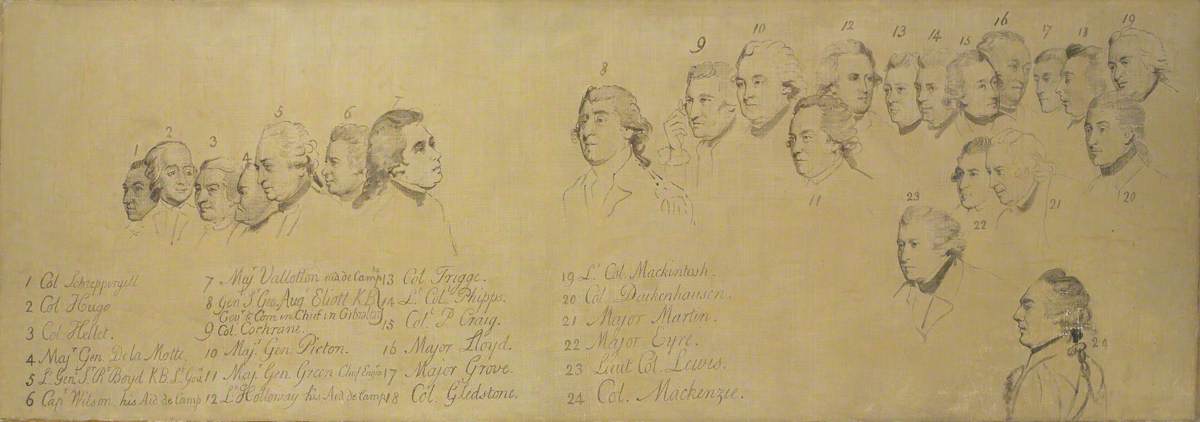 1
2
3
4
5
6
7
8
9
10
11
12
13
14
15
16
17
18
19
20
21
22
23
24
1 Col Schreppergill
2 Col Hugo
3 Col Hellet.
4 Majr Gen. De la Motte,
5 Lt Genl Sr Rt Boyd K.B. Lt Govr
6 Capt Wilson his Aid de Camp
7 Majr Vallotton aid de Camp
8 Genl Sr Geo. Aug. Eliott K.B.
Govr & Com in Chief in Gibraltar
9 Col. Cochrane.
10 Majr Gen. Picton.
11 Majr Gen Green Chief Engr
12 Lt Holloway his Aid de Camp
13 Col. Trigge.
14 Lt Colt Phipps.
15 Colt P. Craig.
16 Major Lloyd.
17 Major Grove.
18 Col. Gledstone.
19 Lt Col. Mackintosh.
20 Col. Dackenhausen.
21 Major Martin.
22 Major Eyre.
23 Lieut Col. Lewis.
24 Col. Mackenzee.